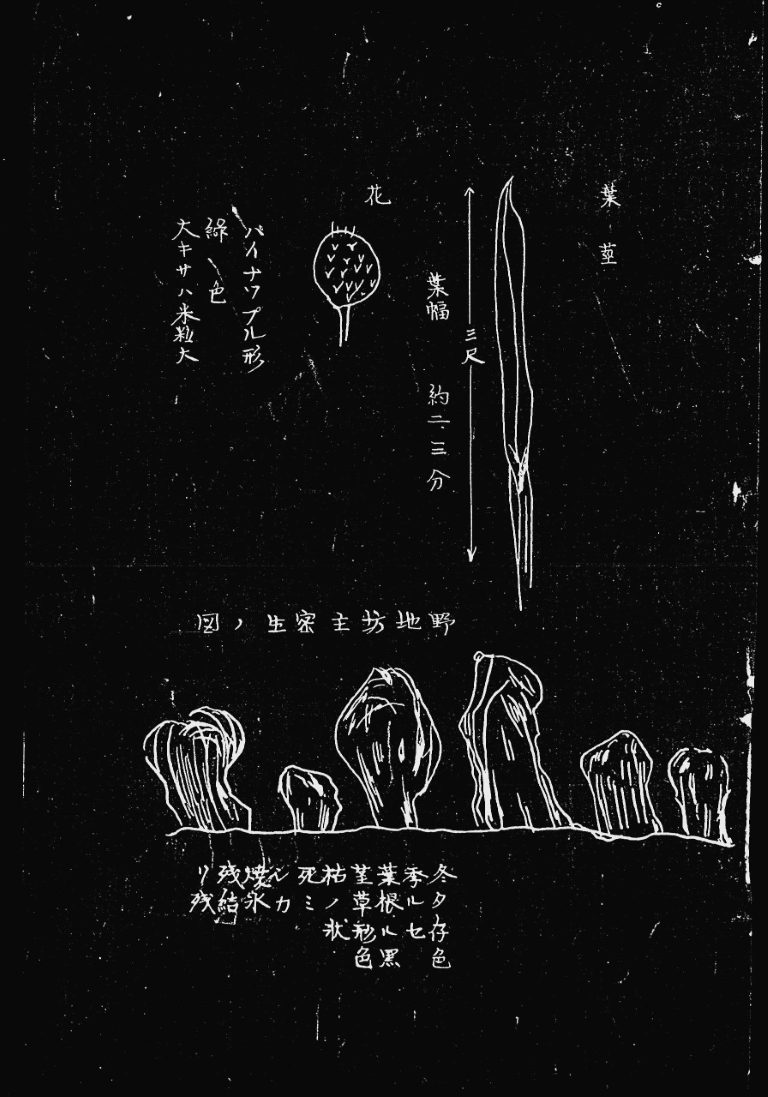 葉茎
三尺
葉幅　約二、三分
花
パイナツプル形
緑色
大キサハ米粒大
野地坊主密生ノ図
冬季葉茎枯死シ焼残リ
タル根草ノミカ氷結残
存セル形状
色　黒色